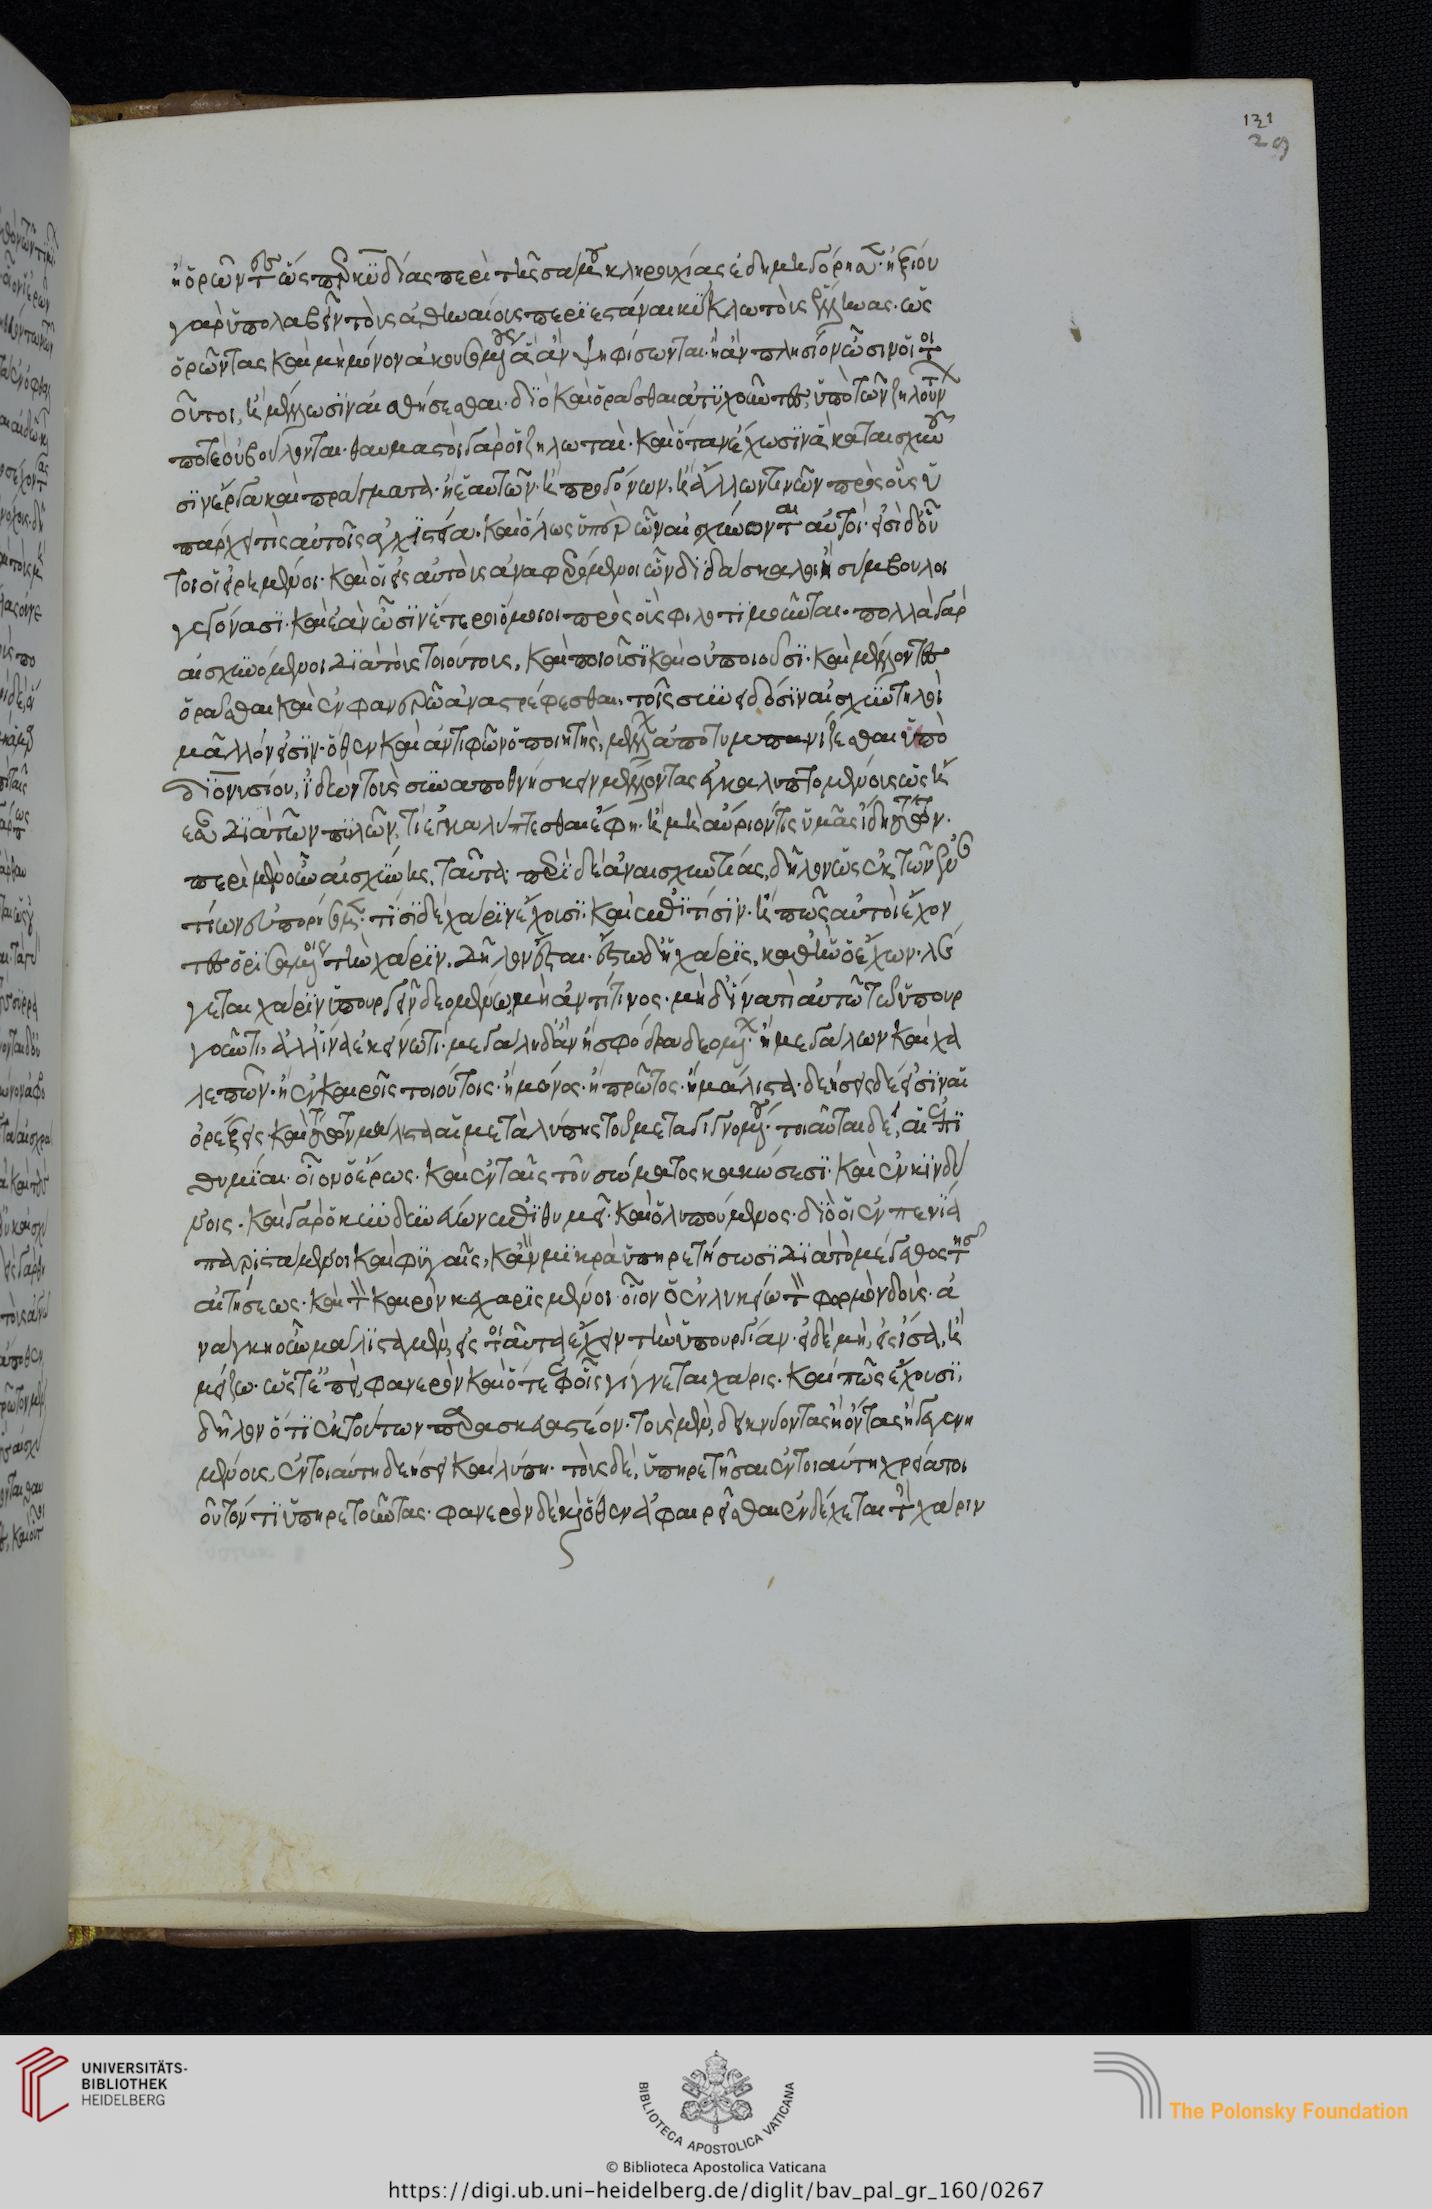 ἢ ὁρώντων ὥσπερ κυδίας περὶ τῆς σάμου κληρουχίας ἐδημηγόρησεν· ἠξίου
γὰρ ὑπολαβεῖν τοὺς ἀθηναίους περιεστάναι κύκλω τοὺς ἕλληνας· ὡς
ὁρῶντας καὶ μὴ μόνον ἀκουσομένους ἃ ἂν ψηφίσωνται· ἢ ἂν πλησίον ὦσιν οἱ τοι
οῦτοι, ἢ μέλλωσιν αἰσθήσεσθαι· διὸ καὶ ὁρᾶσθαι ἀτυχοῦντες, ὑπὸ τῶν ζηλούντων
ποτὲ οὐ βούλονται· θαυμασταὶ γὰρ οἱ ζηλωταί· καὶ ὅταν ἔχωσιν ἃ καταισχύνου
σιν ἔργα καὶ πράγματα· ἢ ἑαυτῶν· ἢ προγόνων, ἢ ἄλλων τινῶν πρὸς οὓς ὑ
πάρχει τὶς αὐτοῖς ἀγχιστεία· καὶ ὅλως ὑπὲρ ὧν αἰσχύνονται αὐτοί· εἰσὶ δ' οὗ
τοι οἱ εἰρημένοι· καὶ οἱ εἰς αὐτοὺς ἀναφερόμενοι ὧν διδάσκαλοι ἢ σύμβουλοι
γεγόνασι· καὶ ἐὰν ὦσιν ἕτεροι ὅμοιοι πρὸς οὓς φιλοτιμοῦνται· πολλὰ γὰρ
αἰσχυνόμενοι διὰ τοὺς τοιούτους, καὶ ποιοῦσι καὶ οὐ ποιοῦσι· καὶ μέλλοντες
ὁρᾶσθαι καὶ ἐν φανερῶ ἀναστρέφεσθαι, τοῖς συνειδόσιν αἰσχυντηλοὶ
μᾶλλόν εἰσιν· ὅθεν καὶ ἀντιφῶν ὁ ποιητής, μέλλων ἀποτυμπανίζεσθαι ὑπὸ
διονυσίου, ἰδὼν τοὺς συναποθνήσκειν μέλλοντας ἐγκαλυπτομένους ὡς ἤ
εσαν διὰ τῶν πυλῶν, τί ἐγκαλύπτεσθαι ἔφη· ἢ μὴ αὔριόν τις ὑμᾶς ἴδη τούτων·
περὶ μὲν οὖν αἰσχύνης, ταῦτα· περὶ δὲ ἀναισχυντίας, δῆλον ὡς ἐκ τῶν ἐναν
τίων εὐπορήσομεν· τίσι δὲ χάριν ἔχουσι· καὶ ἐπὶ τίσιν· ἢ πῶς αὐτοὶ ἔχον
τες ὁρισαμένοις τὴν χάριν, δῆλον ἔσται· ἔστω δὴ χάρις, καθ' ἣν ὁ ἔχων λέ
γεται χάριν ὑπουργεῖν δεομένω, μὴ ἀντί τινος· μὴ δ' ἵνα τὶ αὐτῶ τῶ ὑπουρ
γοῦντι, ἀλλ' ἵνα ἐκείνω τι· μεγάλη δ' ἂν ἢ σφόδρα δεόμενος· ἢ μεγάλων καὶ χα
λεπῶν· ἢ ἐν καιροῖς τοιούτοις· ἢ μόνος· ἢ πρῶτος· ἢ μάλιστα· δεήσεις δέ εἰσιν αἱ
ὀρέξεις· καὶ τούτων μάλιστα αἱ μετὰ λύπης τοῦ μὴ γιγνομένου· τοιαῦται δὲ, αἱ ἐπι
θυμίαι· οἷον ὁ ἔρως· καὶ ἐν ταῖς τοῦ σώματος κακώσεσι· καὶ ἐν κινδύ
νοις· καὶ γὰρ ὁ κινδυνεύων ἐπιθυμεῖ· καὶ ὁ λυπούμενος· διὸ οἱ ἐν πενία
παριστάμενοι καὶ φυγαῖς, κἂν μικρὰ ὑπηρετήσωσι διὰ τὸ μέγεθος τῆς
αἰτήσεως· καὶ τὸν καιρὸν κεχαρισμένοι· οἷον ὁ ἐν λυκείω τὸν φορμὸν δοὺς· ἀ
νάγκη οὖν μάλιστα μὲν, εἰς ταῦτα ἔχειν τὴν ὑπουργίαν· εἰ δὲ μὴ, εἰς ἴσα, ἢ
μείζω· ὥστε ἐπεὶ, φανερὸν καὶ ὅτε ἐφ' οἷς γίγνεται χάρις· καὶ πῶς ἔχουσι,
δῆλον ὅτι ἐκ τούτων παρασκευαστέον· τοὺς μὲν, δεικνύοντας ἢ ὄντας ἢ γεγενη
μένους, ἐν τοιαύτη δεήσει καὶ λύπη· τοὺς δὲ, ὑπηρετῆσαι ἐν τοιαύτη χρεία τοι
οῦτόν τι ὑπηρετοῦντας· φανερὸν δὲ καὶ ὅθεν ἀφαιρεῖσθαι ἐνδέχεται τὴν χάριν
131
29
UNIVERSITÄTS-
BIBLIOTHEK
HEIDELBERG
BIBLIOTECA APOSTOLICA VATICANA
© Biblioteca Apostolica Vaticana
The Polonsky Foundation
https://digi.ub.uni-heidelberg.de/diglit/bav_pal_gr_160/0267